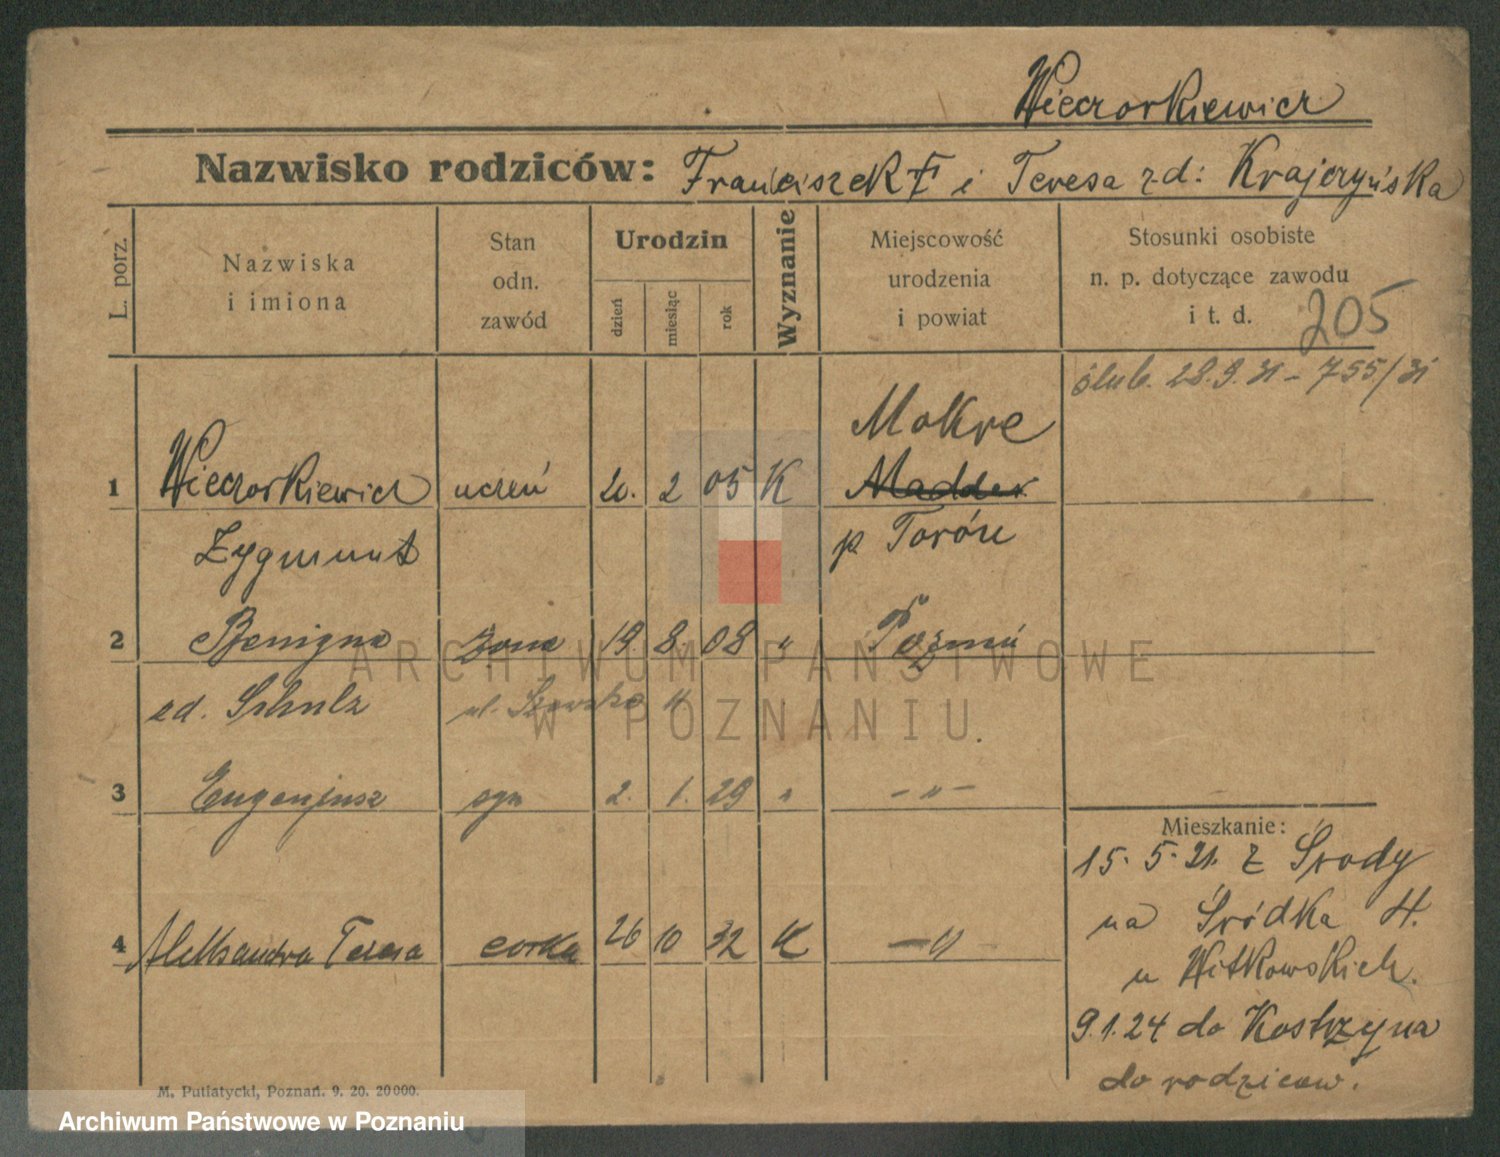 Wieczorkiewicz
Nazwisko rodziców: Franciszek † i Teresa z d: Krajczyńska
L. porz.
Nazwiska
i imiona
Stan
odn.
zawód
Urodzin
dzień
miesiąc
rok
Wyznanie
Miejscowość
urodzenia
i powiat
Stosunki osobiste
n. p. dotyczące zawodu
i t. d.
205
ślub. 28.9.31 - 755/31
Mokre
1 Wieczorkiewicz uczeń 20. 2 05 K
Zygmunt p Toróń
2 Benigna żona 19. 8. 08 " Poznań
zd. Schulz ul. 4
3 Eugenjusz syn 2. 1. 29 " - " -
Mieszkanie:
15. 5. 21. z Środy
na Śródka 4.
4 Aleksandra Teresa corka 26 10 32 K - "
u Witkowskich.
9.1.24 do Kostrzyna
do rodzicow.
M. Putiatycki, Poznań. 9. 20. 20000.
ARCHIWUM PAŃSTWOWE
W POZNANIU
Archiwum Państwowe w Poznaniu